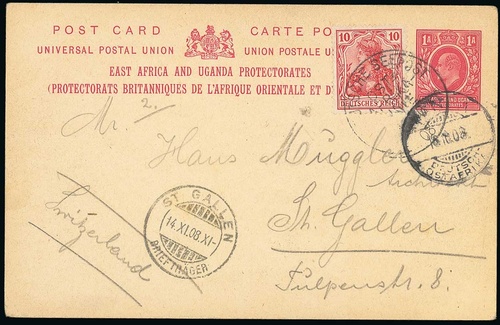 POST CARD CARTE PO
UNIVERSAL POSTAL UNION UNION POSTALE U
EAST AFRICA AND UGANDA PROTECTORATES
(PROTECTORATS BRITANNIQUES DE L'AFRIQUE ORIENTALE ET D
10 10
DEUTSCHES REICH
1A 1A
SEEPOST
2.
Mr. Hans Muggler
Architect
St. Gallen
Tulpenstr. 8.
Switzerland
ST. GALLEN
14.XI.08.XI-
BRIEFTRÄGER
DEUTSCH
OSTAFRIKA